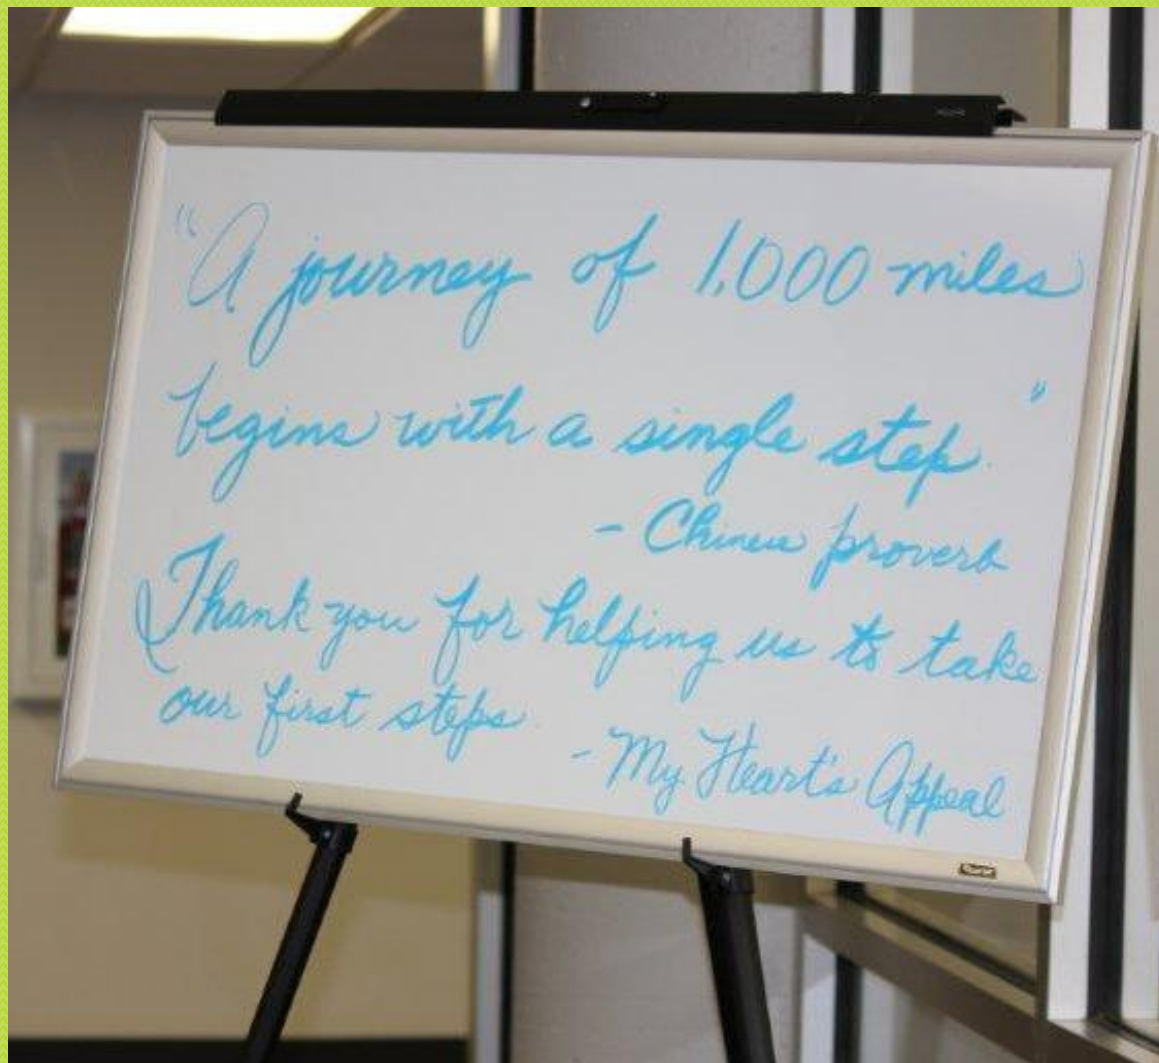 "A journey of 1,000 miles
begins with a single step."
- Chinese proverb
Thank you for helping us to take
our first steps
- My Heart's Appeal